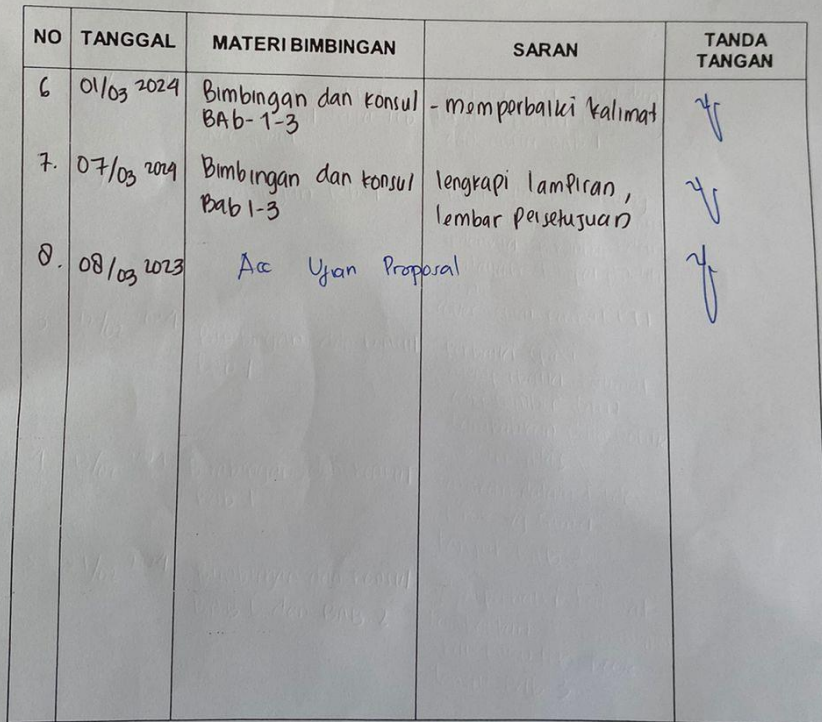 NO TANGGAL MATERI BIMBINGAN SARAN TANDA TANGAN
6 01/03 2024 Bimbingan dan konsul - memperbaiki kalimat
BAb-1-3
7. 07/03 2024 Bimbingan dan konsul lengkapi lampiran,
Bab 1-3 lembar persetujuan
8. 08/03 2023 Acc Ujian Proposal